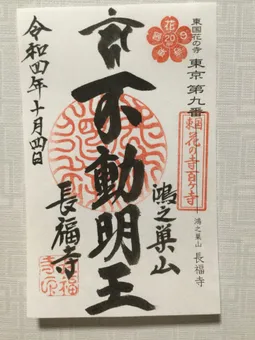 東国花の寺
東京 第九番
東国花の寺百ヶ寺
鴻之巣山 長福寺
鴻之巣山
不動明王
長福寺
令和四年十月四日